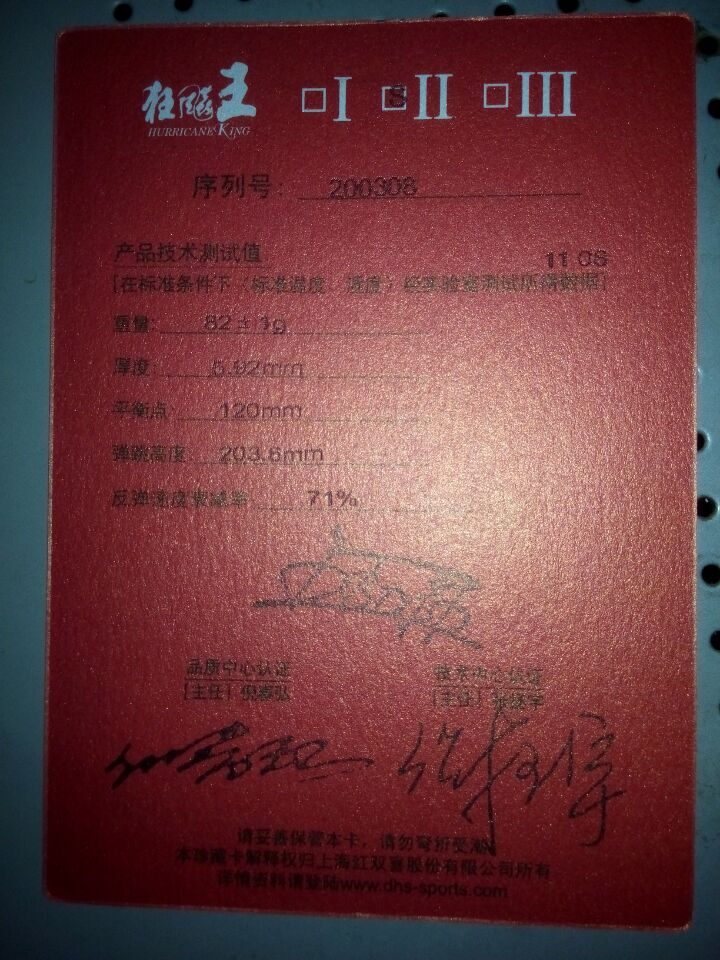 狂飚王
HURRICANE·KING
□I S II □III
序列号: 200308
产品技术测试值 11 08
[在标准条件下(标准温度、湿度)经实验室测试所得数据]
重量: 82±1g
厚度: 5.92mm
平衡点: 120mm
弹跳高度 203.6mm
反弹速度衰减率 71%
品质中心认证 技术中心认证
[主任] 倪嘉弘 [主任]
请妥善保管本卡,请勿弯折受潮
本珍藏卡解释权归上海红双喜股份有限公司所有
详情资料请登陆www.dhs-sports.com